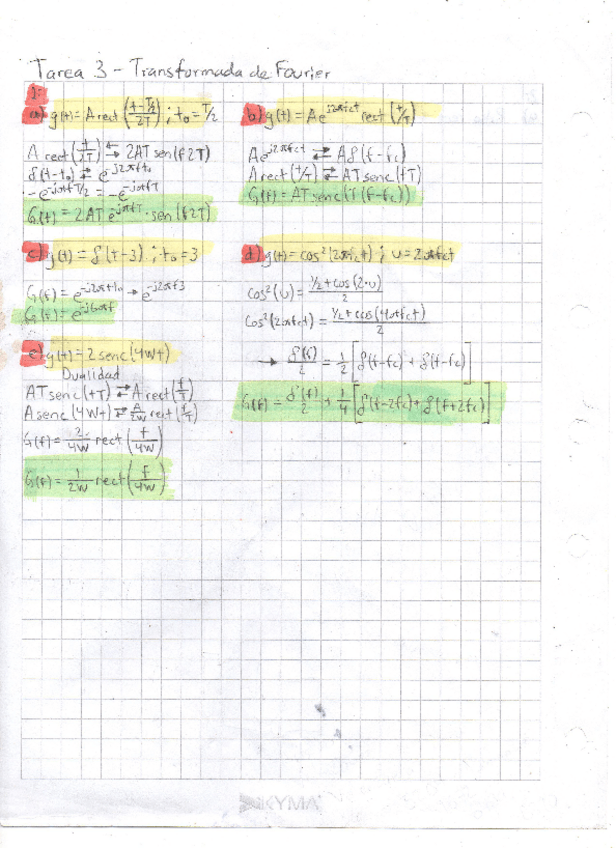 Tarea 3 - Transformada de Fourier
1:
a) g(t) = A rect((t-T/2)/2T) ; t₀ = T/2
A rect(t/2T) ⇄ 2AT sen(f2T)
δ(t-t₀) ⇄ e^-j2πft₀
-e^-j2πfT/2 = -e^-jπfT
G(t) = 2AT e^-jπfT · sen(f2T)
b) g(t) = Ae^j2πfct rect(t/T)
Ae^j2πfct ⇄ Aδ(f-fc)
A rect(t/T) ⇄ AT senc(fT)
G(f) = AT senc(T(f-fc))
c) g(t) = δ(t-3) ; t₀ = 3
G(f) = e^-j2πft₀ → e^-j2πf3
G(f) = e^-j6πf
d) g(t) = cos²(2πfct) ; u = 2πfct
cos²(u) = (1/2 + cos(2·u))/2
cos²(2πfct) = (1/2 + cos(4πfct))/2
→ δ(f)/2 = 1/2 [δ(f-fc) + δ(f-fc)]
G(f) = δ(f)/2 + 1/4 [δ(f-2fc) + δ(f+2fc)]
e) g(t) = 2 senc(4Wt)
Dualidad
AT senc(tT) ⇄ A rect(f/T)
A senc(4Wt) ⇄ A/2W rect(f/T)
G(f) = 2/4W rect(f/4W)
G(f) = 1/2W rect(f/4W)
KYMA